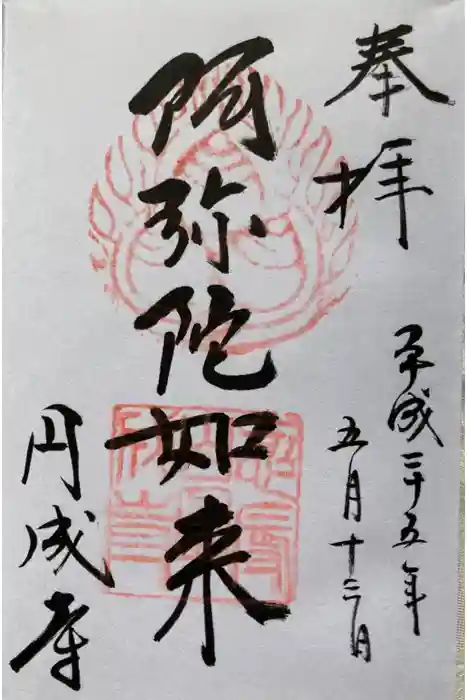 奉拝
平成二十五年
五月十三日
阿弥陀如来
円成寺